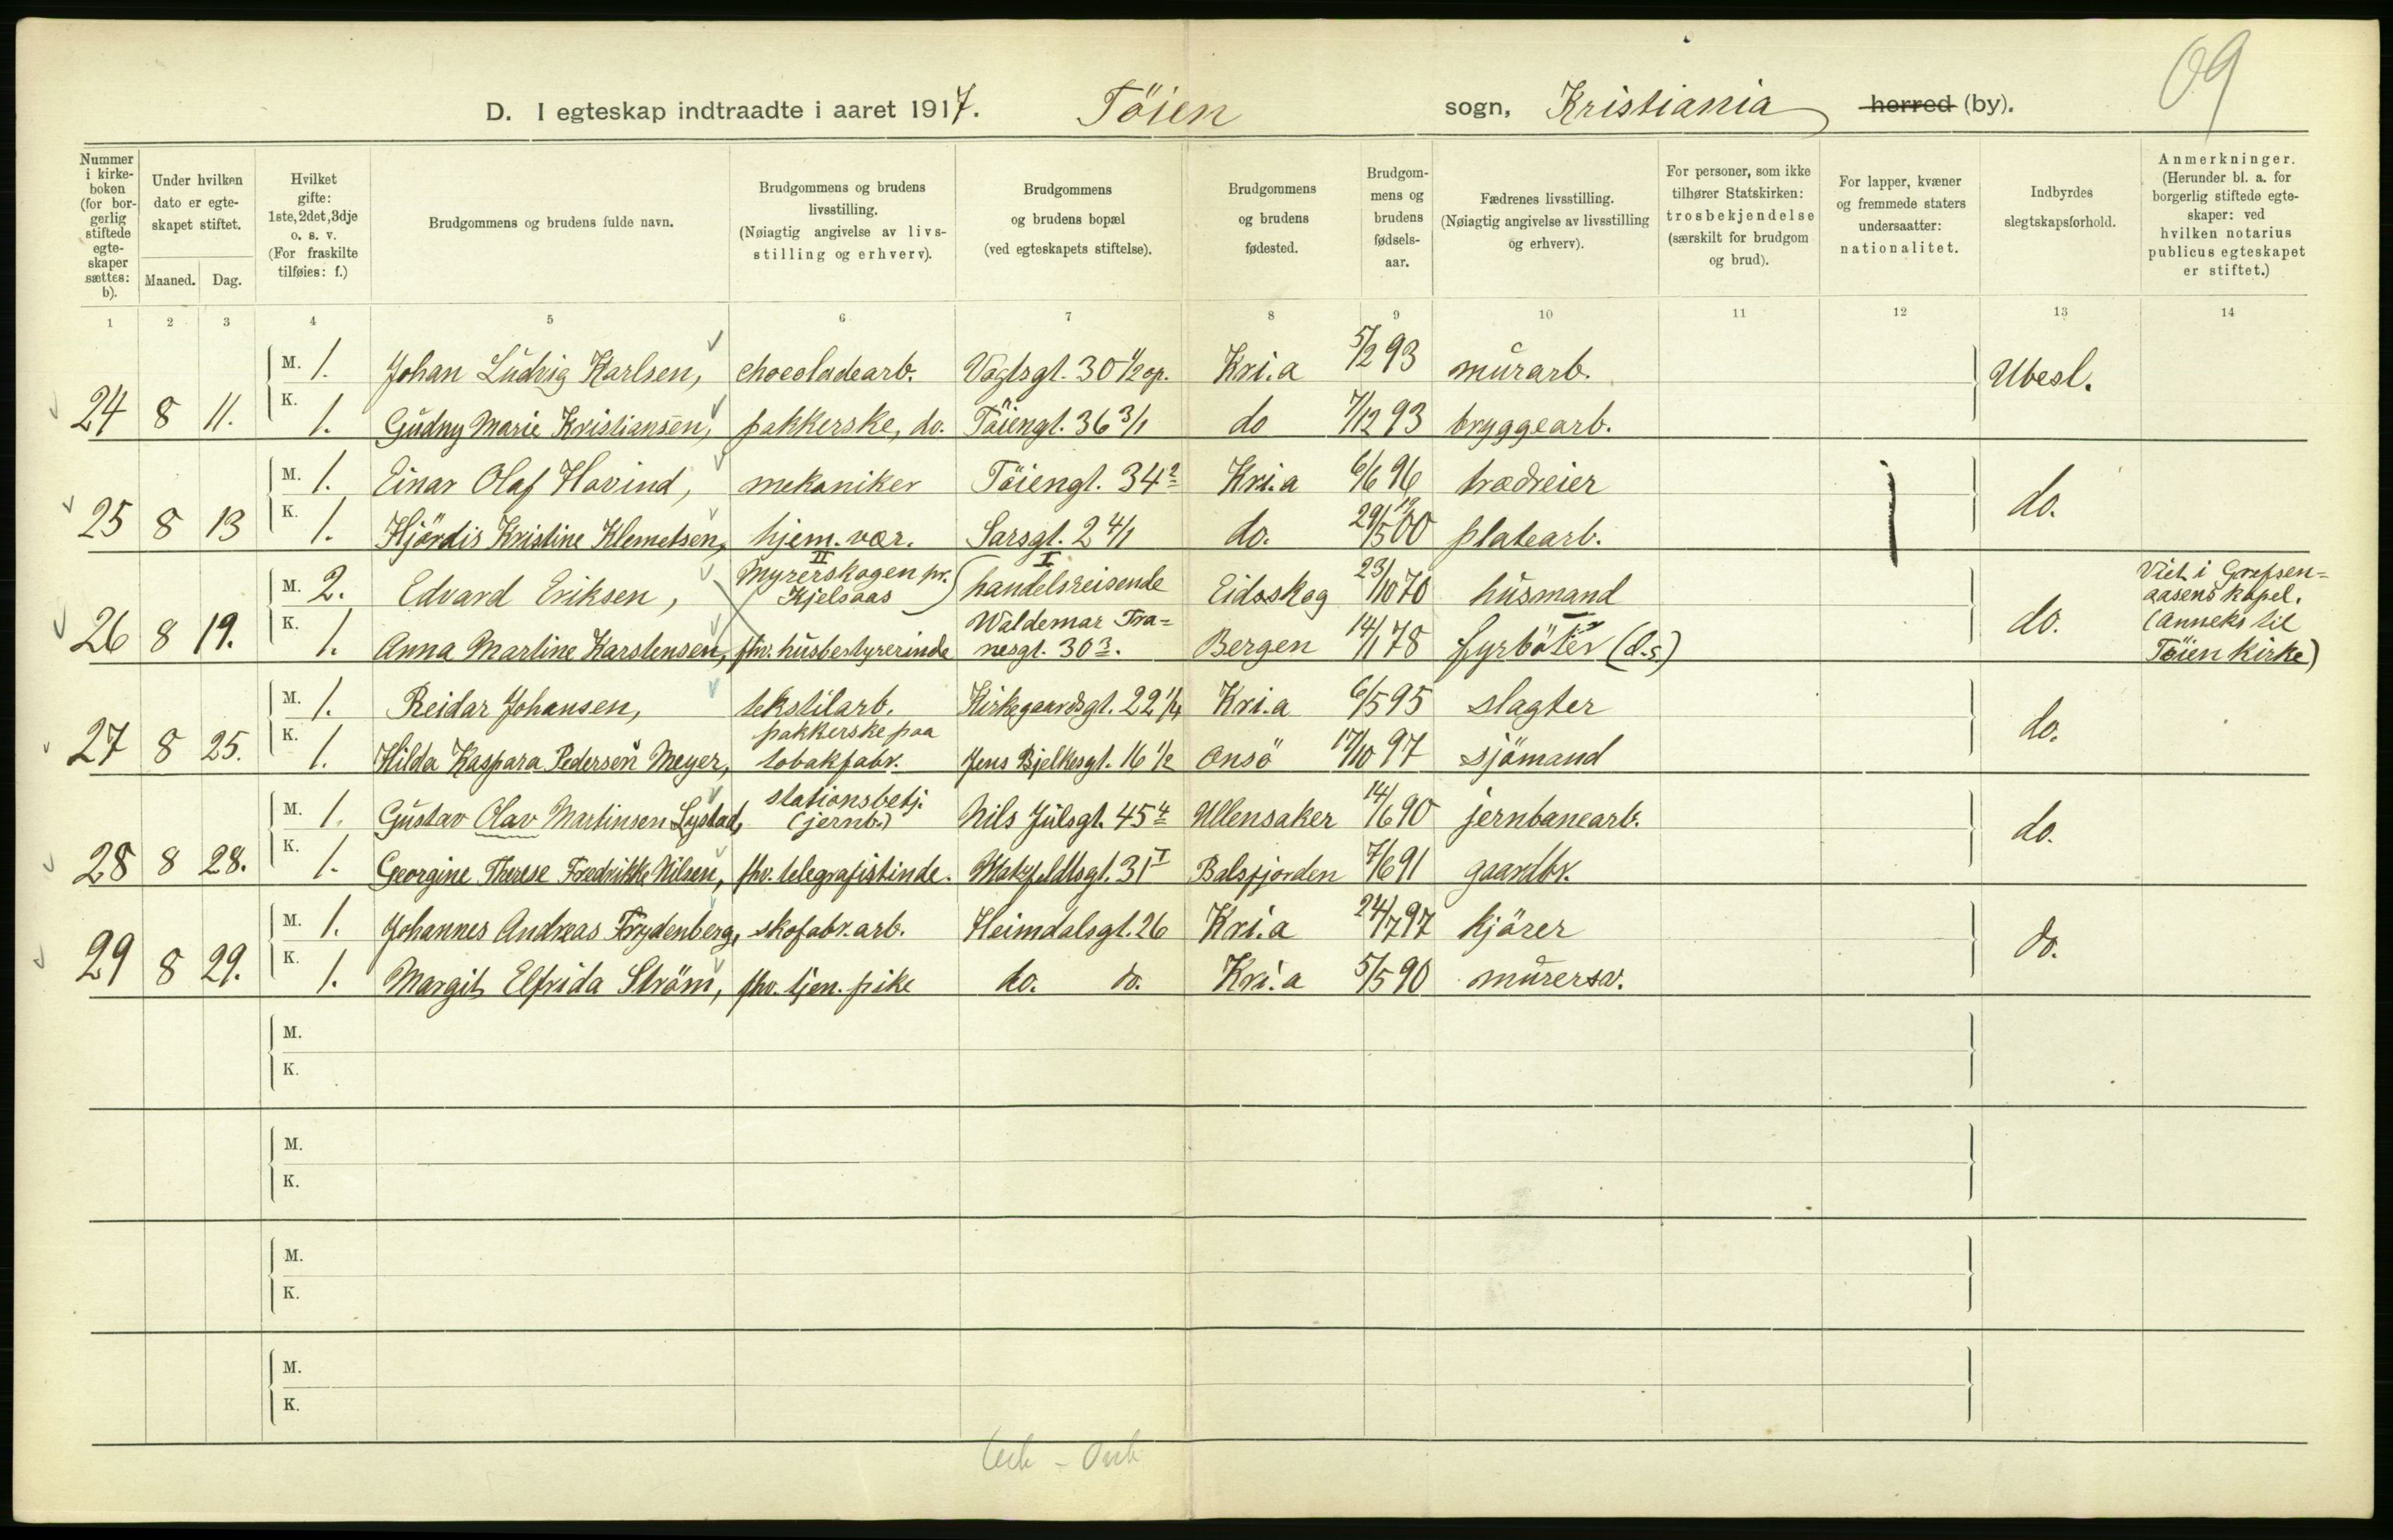 09
D. I egteskap indtraadte i aaret 1917. Töien sogn, Kristiania herred (by).
Nummer i kirkeboken (for borgerlig stiftede egteskaper sættes: b).
Under hvilken dato er egteskapet stiftet.
Maaned. Dag.
Hvilket gifte: 1ste, 2det, 3dje o. s. v. (For fraskilte tilføies: f.)
Brudgommens og brudens fulde navn.
Brudgommens og brudens livsstilling. (Nøiagtig angivelse av livsstilling og erhverv).
Brudgommens og brudens bopæl (ved egteskapets stiftelse).
Brudgommens og brudens fødested.
Brudgommens og brudens fødselsaar.
Fædrenes livsstilling. (Nøiagtig angivelse av livsstilling og erhverv).
For personer, som ikke tilhører Statskirken: trosbekjendelse (særskilt for brudgom og brud).
For lapper, kvæner og fremmede staters undersaatter: nationalitet.
Indbyrdes slegtskapsforhold.
Anmerkninger. (Herunder bl. a. for borgerlig stiftede egteskaper: ved hvilken notarius publicus egteskapet er stiftet.)
1 2 3 4 5 6 7 8 9 10 11 12 13 14
M. 1. Johan Ludvig Karlsen, chocoladearb. Vogtsgt. 30 1/2 op. Kri.a 5/2 93 murarb. Ubesl.
24 8 11. K. 1. Gudny Marie Kristiansen, pakkerske, do. Töiengt. 36 3/1 do 7/12 93 bryggearb.
M. 1. Einar Olaf Hovind, mekaniker Töiengt. 34 2 Kri.a 6/6 96 trædreier do.
25 8 13 K. 1. Hjördis Kristine Klemetsen, hjem. vær. Sarsgt. 2 4/1 do. 29/5 1900 platearb.
M. 2. Edvard Eriksen, II Myrerskogen pr. Kjelsaas) I handelsreisende Eidsskog 23/10 70 husmand do.
26 8 19. K. 1. Anna Martine Karstensen, fhv. husbestyrerinde Waldemar Tranesgt. 30 3. Bergen 14/1 78 fyrböter (d.s.)
Viet i Grefsenaasens kapel. (Anneks til Töien kirke)
M. 1. Reidar Johansen, tekstilarb. Kirkegaardsgt. 22 1/4 Kri.a 6/5 95 slagter do.
27 8 25. K. 1. Hilda Kaspara Pedersen Meyer, pakkerske paa tobakfabr. Jens Bjelkesgt. 16 1/2 Onsö 17/10 97 sjömand
M. 1. Gustav Olav Martinsen Lystad, stationsbetj. (jernb.) Nils Julsgt. 45 4 Ullensaker 14/6 90 jernbanearb. do.
28 8 28. K. 1. Georgine Therese Fredrikke Nilsen, fhv. telegrafistinde. Hatzfeldtsgt. 31 I Balsfjorden 7/6 91 gaardbr.
M. 1. Johannes Andreas Frydenberg, skofabr. arb. Heimdalsgt. 26 Kri.a 24/7 97 kjörer do.
29 8 29. K. 1. Margit Elfrida Ström, fhv. tjen. pike do. do. Kri.a 5/5 90 murersv.
M.
K.
M.
K.
M.
K.
M.
K.